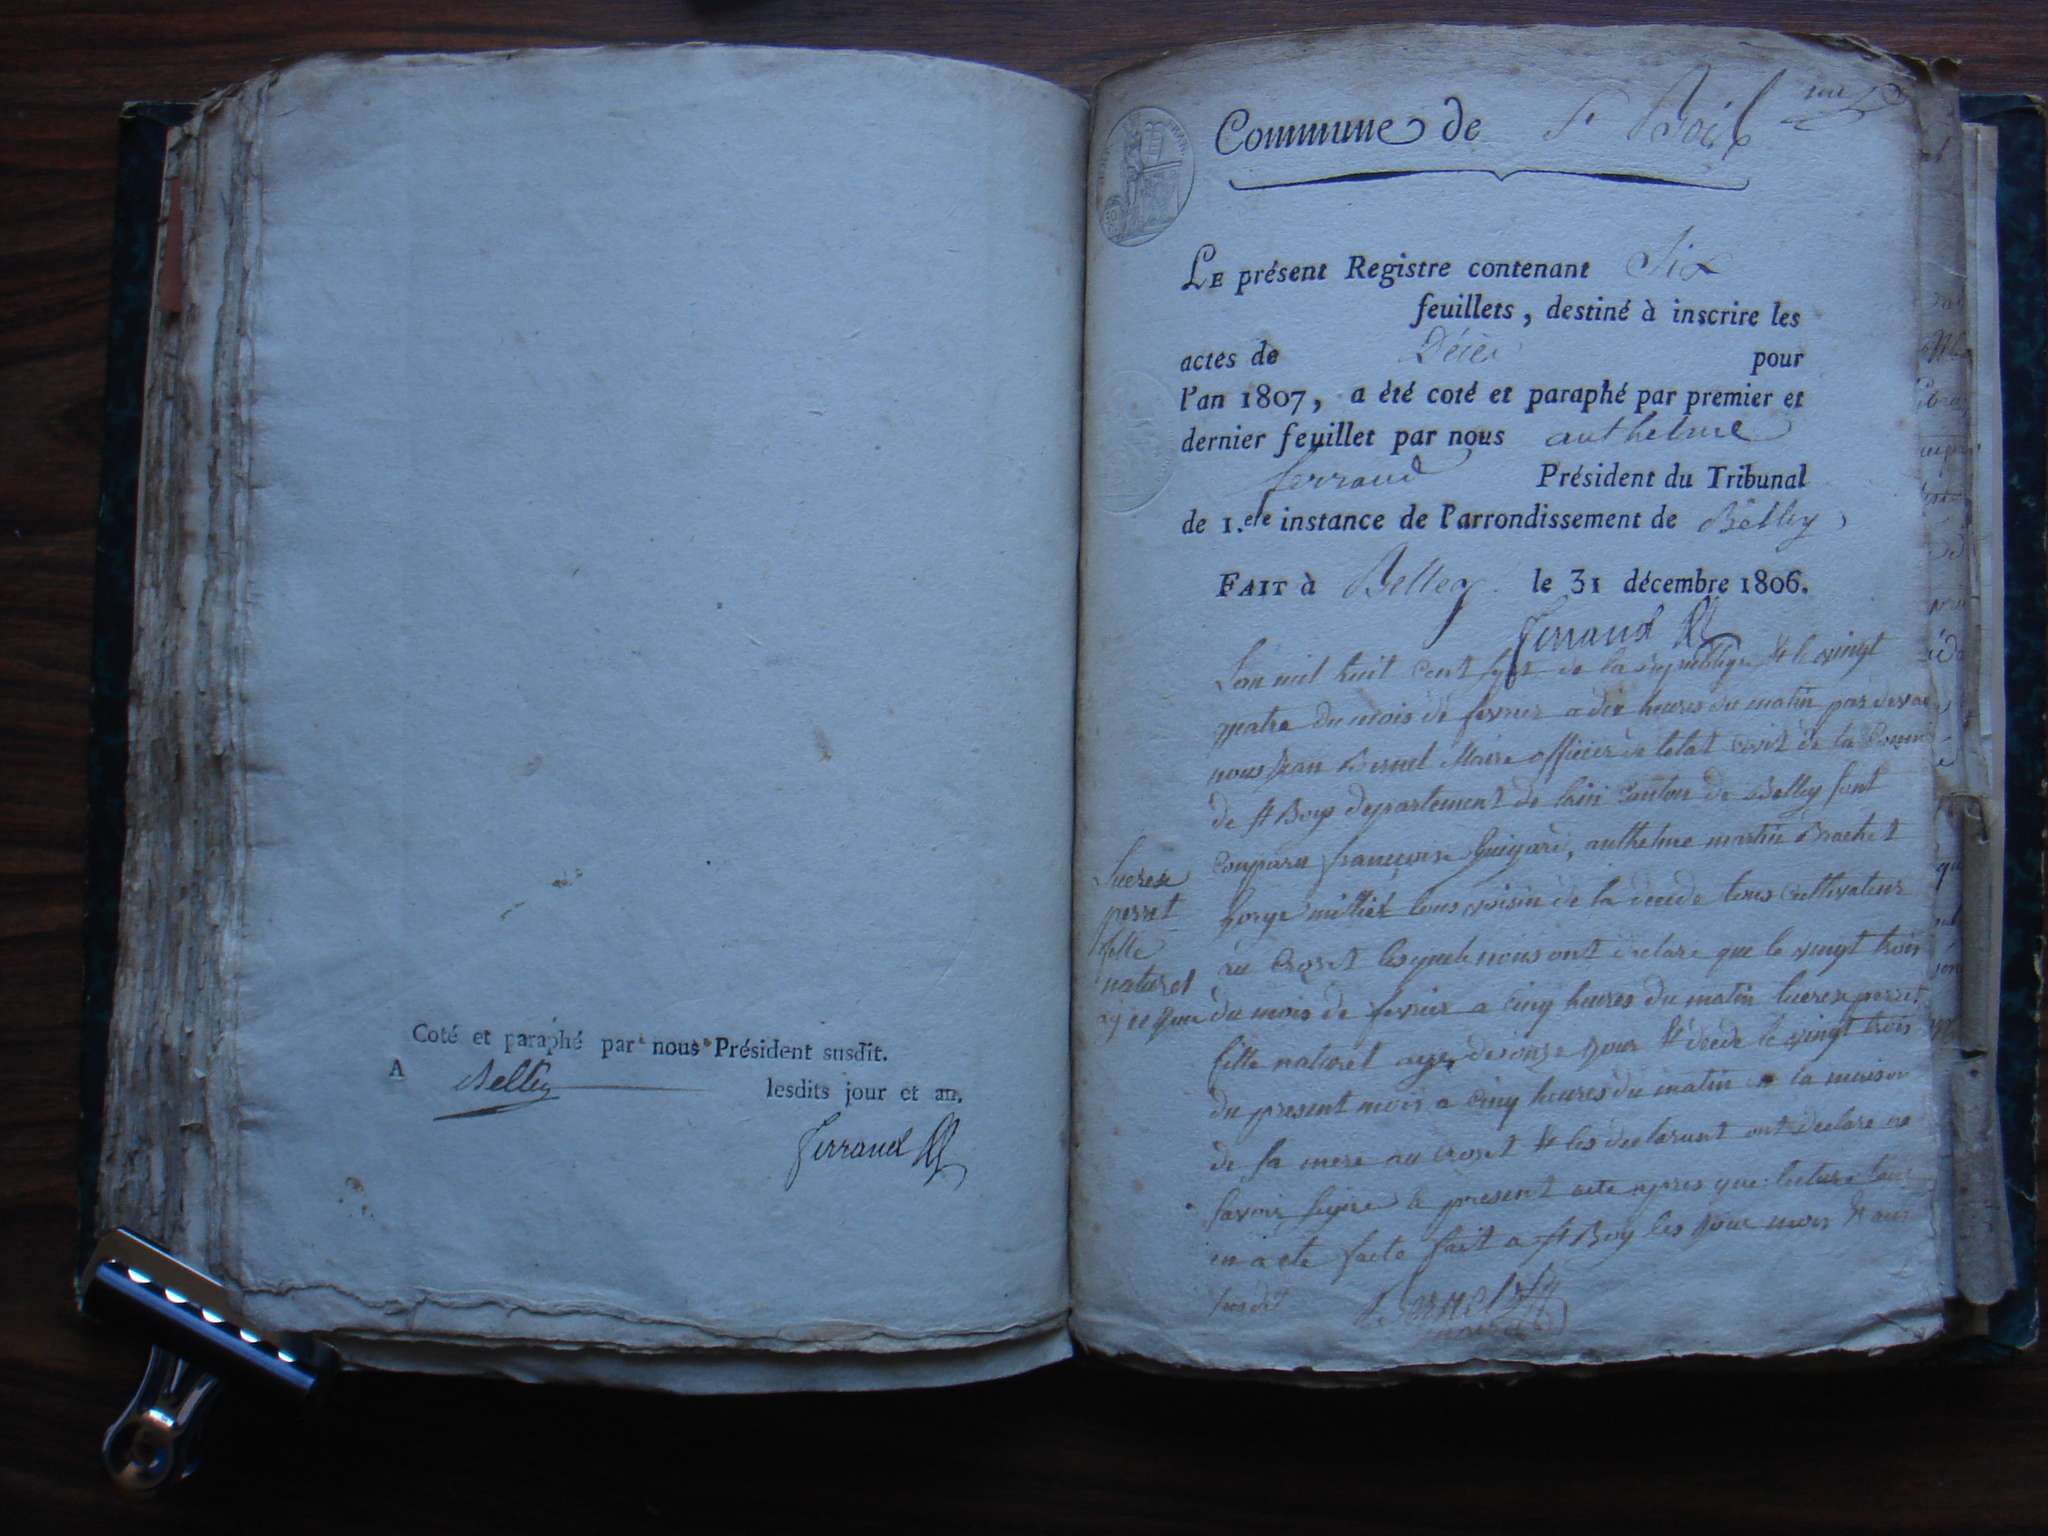 Coté et paraphé par nous Président susdit.
A Belley lesdits jour et an.
Ferrand
Commune de St Boil
LE présent Registre contenant Six
feuillets, destiné à inscrire les
actes de Décès pour
l'an 1807, a été coté et paraphé par premier et
dernier feuillet par nous anthelme
ferrand Président du Tribunal
de 1.ere instance de l'arrondissement de Belley
FAIT à Belley le 31 décembre 1806.
Ferrand
Lan mil huit cent sept de la republique le vingt
quatre du mois de fevrier a dix heures du matin par devan
nous jean Maire officier de letat civil de la Comm
de st Boys departement de lain Canton de Belley sont
comparu francoise Guigard, anthelme martin Brachet
george milliet tous voisin de la decede tous cultivateur
au Crozet lesquels nous ont declare que le vingt trois
du mois de fevrier a cinq heures du matin lucresse perret
fille naturel agee de onze jour decede le vingt trois
du present mois a cinq heures du matin a la maison
de sa mere au crozet les declarant ont declare ne
savoir signe le present acte apres que lecture leur
en a ete faite fait a st Boy les jour mois et an
susdit
lucresse
perret
fille
naturel
11 jour